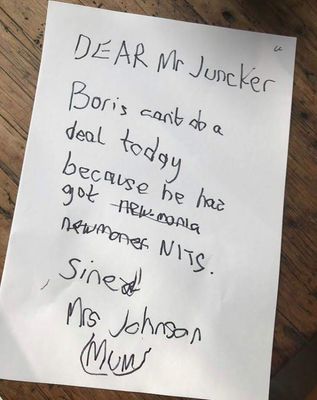 DEAR Mr Juncker
Boris can't do a
deal today
because he has
got new-monia
newmoner NITS.
Sined
Mrs Johnson
(MUM)